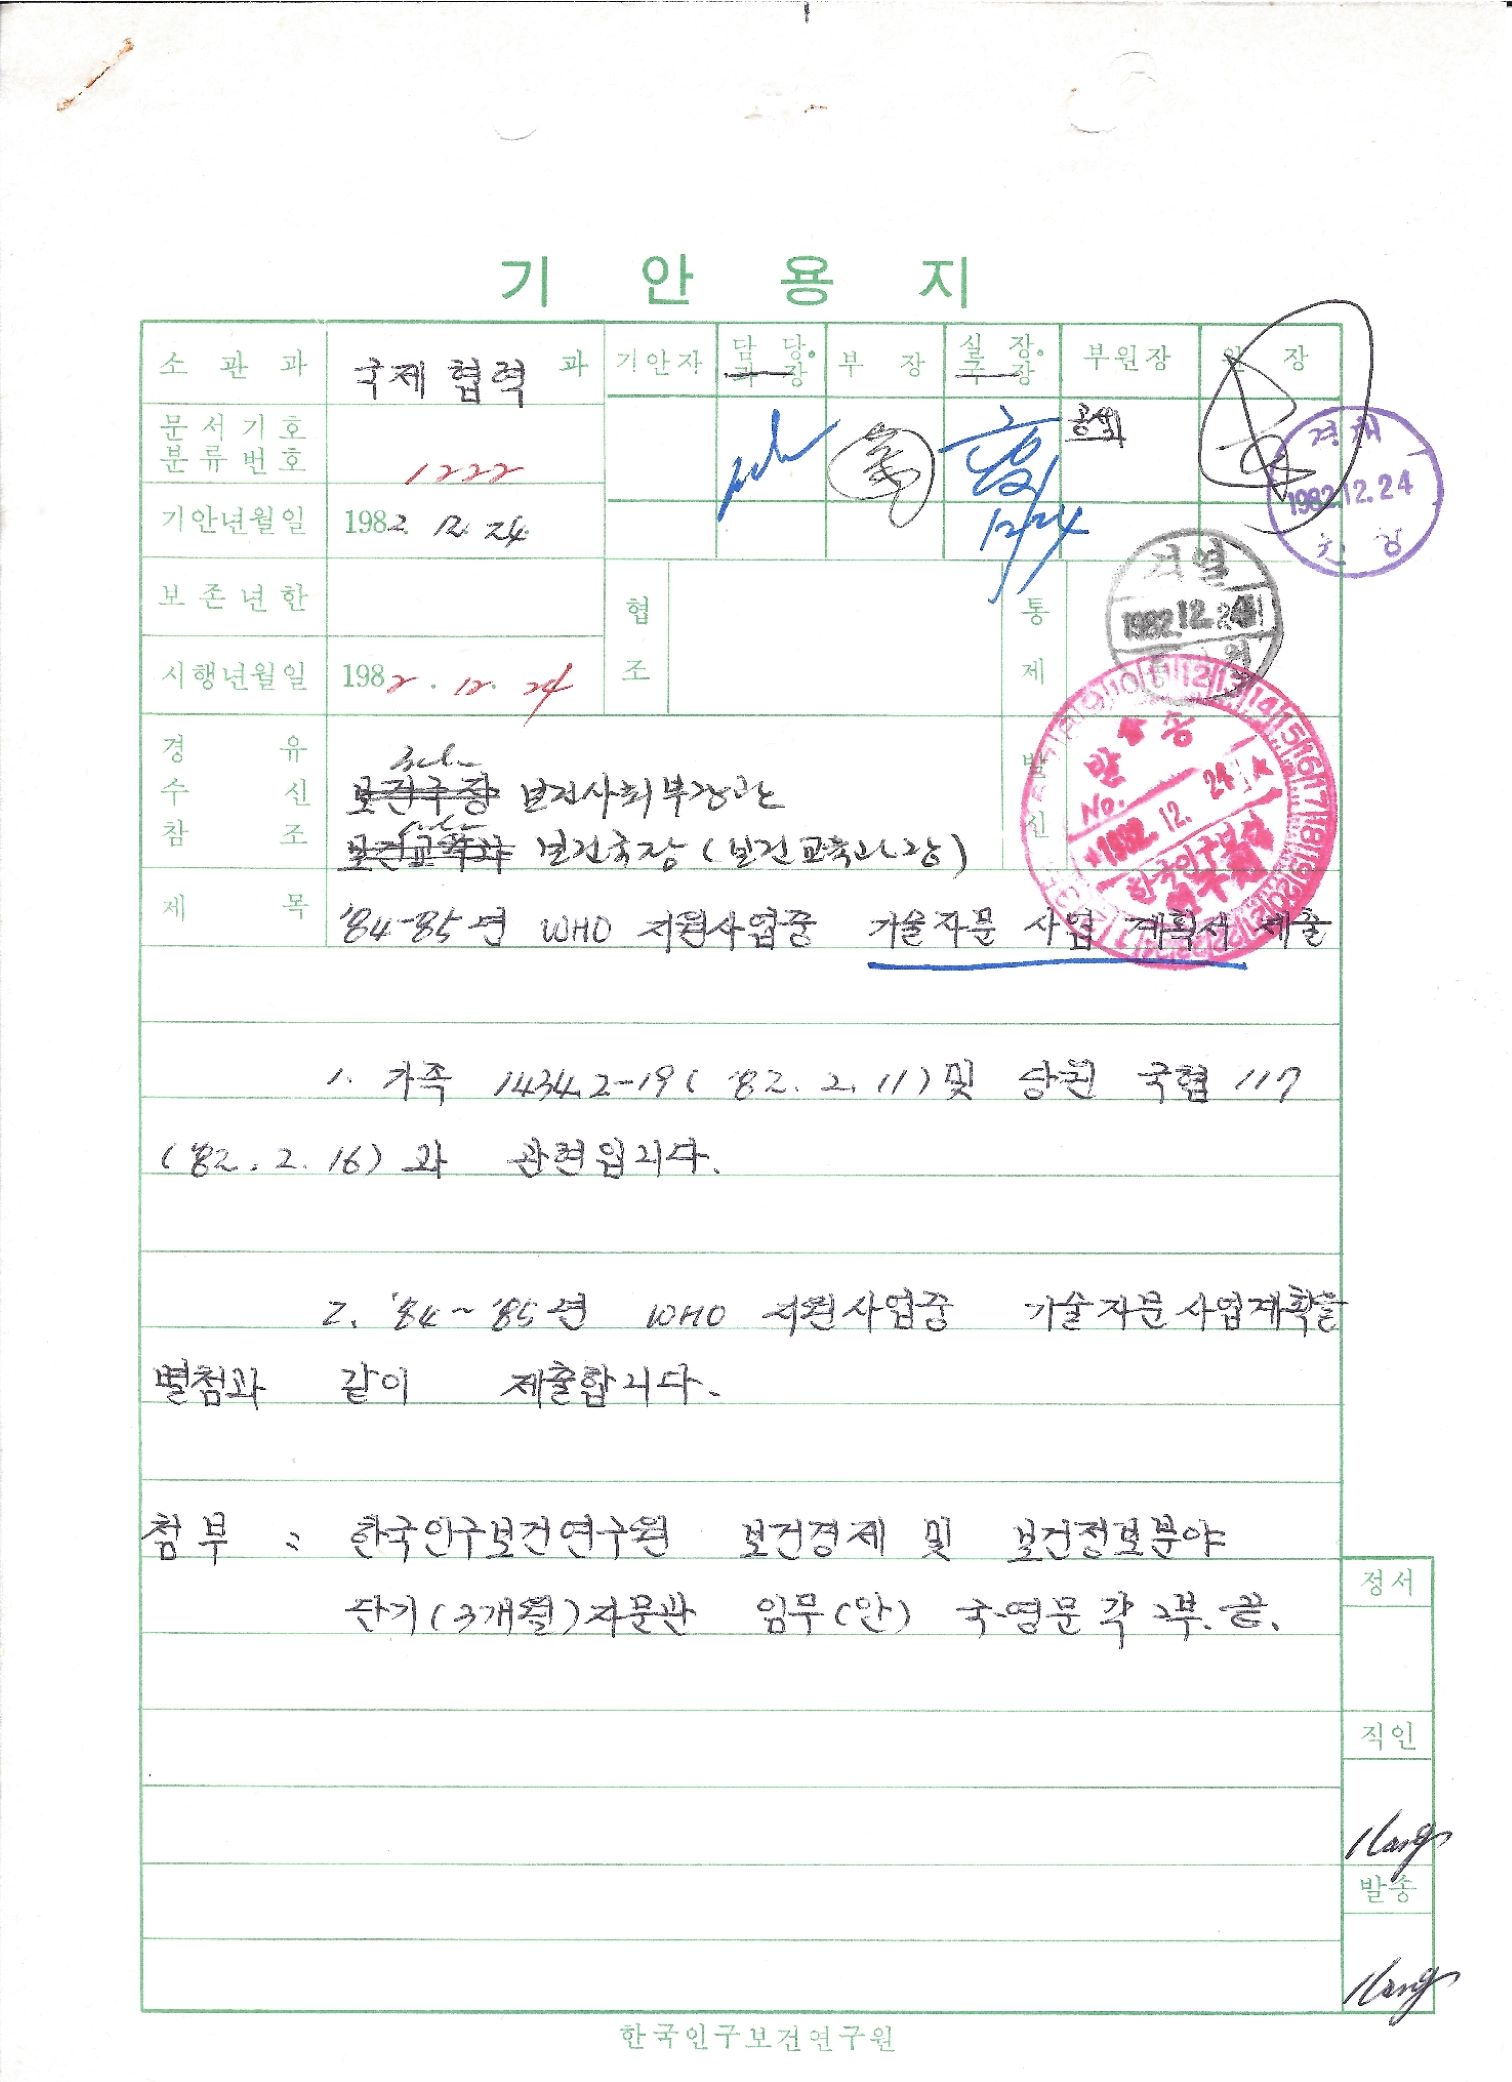 기 안 용 지
소 관 과 국제협력 과 기안자 담 당. 과 장 부 장 실 장. 국 장 부원장 원 장
문서기호
분류번호 1222
공석
결재
1982.12.24
기안년월일 1982. 12. 24.
12/24
검열
1982.12.24
보존년한
협조
통제
시행년월일 1982. 12. 24
경 유
수 신 보건국장 보건사회부장관
참 조 보건교육과 보건국장 (보건교육과장)
발신
발송
No.
1982. 12. 24
한국인구보건
제 목 '84-85년 WHO 지원사업중 기술자문 사업 계획서 제출
1. 가족 1434.2-19 ( '82. 2. 11) 및 당원 국협 117
('82. 2. 16) 과 관련입니다.
2. '84~'85년 WHO 지원사업중 기술자문사업계획을
별첨과 같이 제출합니다.
첨 부 : 한국인구보건연구원 보건경제 및 보건정보분야
단기(3개월)자문관 임무(안) 국·영문 각 2부. 끝.
정서
직인
Kang
발송
Kang
한국인구보건연구원